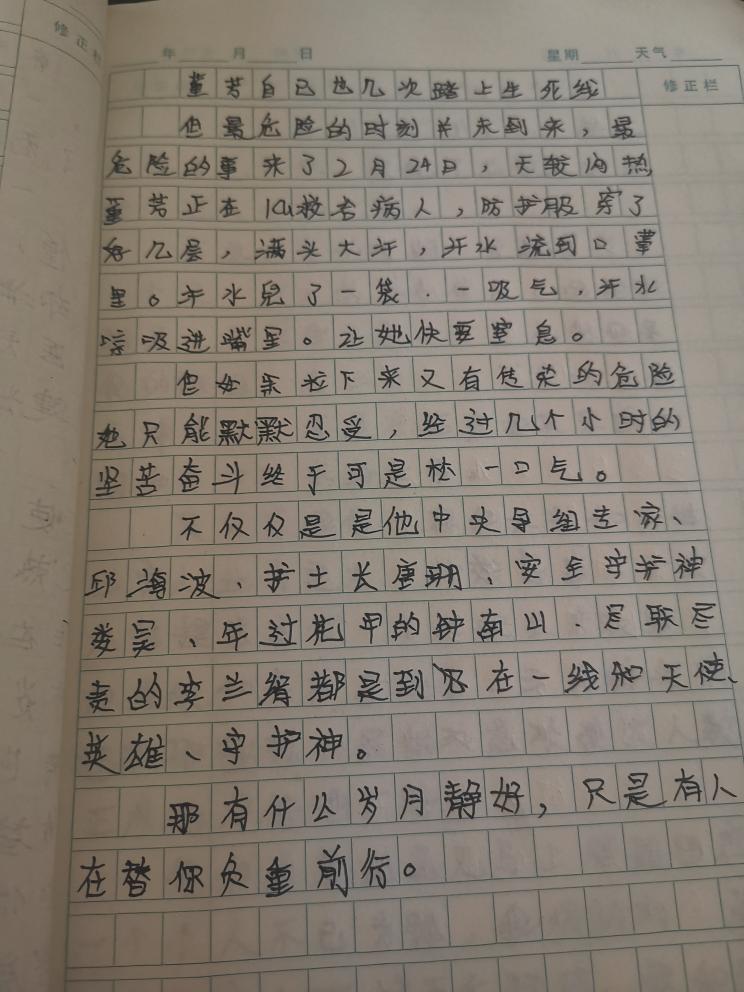 修正栏
年 月 日 星期 天气
修正栏
董芳自己也几次踏上生死线
但最危险的时刻并未到来，最
危险的事来了2月24日，天较闷热
董芳正在ICU救治病人，防护服穿了
好几层，满头大汗，汗水流到口罩
里。汗水兜了一袋．一吸气，汗水
吸进嘴里。让她快要窒息。
但如果拉下来又有传染的危险
她只能默默忍受，经过几个小时的
坚苦奋斗终于可是松一口气。
不仅仅是是他中央导组专家、
邱海波、护士长唐珊、安全守护神
娄昊、年过花甲的钟南山．尽职尽
责的李兰娟都是到在一线和天使、
英雄、守护神。
那有什么岁月静好，只是有人
在替你负重前行。